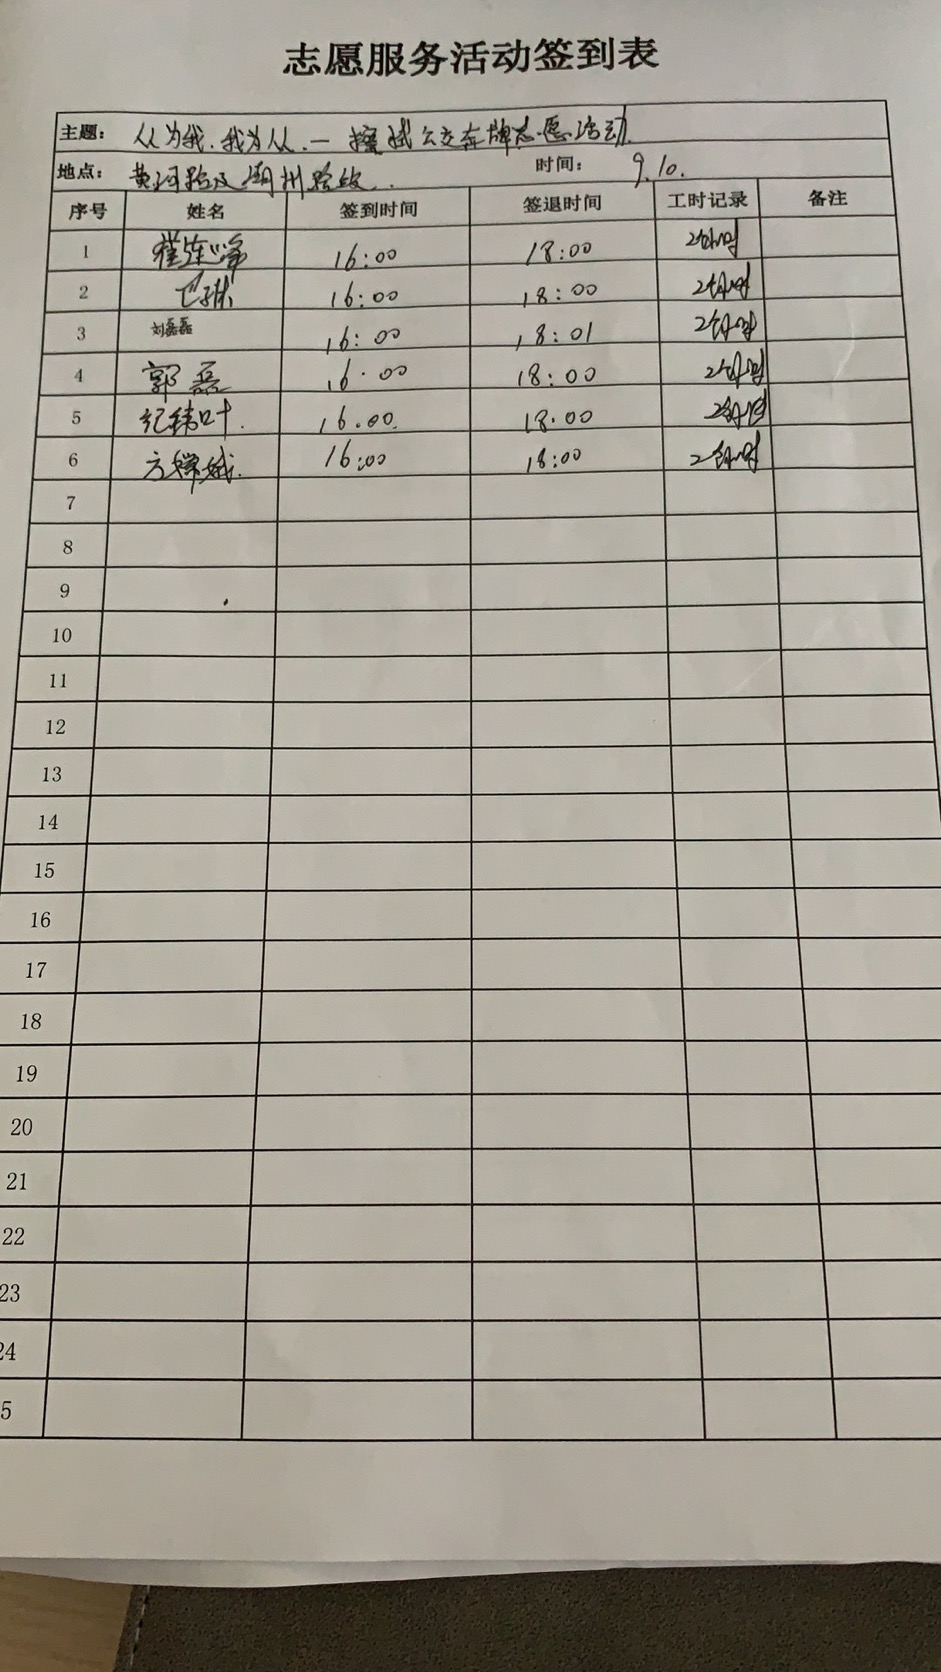 志愿服务活动签到表
主题: 人人为我.我为人人.一擦拭公交车牌志愿活动.
地点: 黄河路及潮州路段.. 时间: 9.10.
序号 姓名 签到时间 签退时间 工时记录 备注
1 16:00 18:00 2小时
2 16:00 18:00 2小时
3 刘磊磊 16:00 18:01 2小时
4 郭磊 16:00 18:00 2小时
5 纪纬叶. 16:00. 18:00 2小时
6 方嫦娥. 16:00 18:00 2小时
7
8
9
10
11
12
13
14
15
16
17
18
19
20
21
22
23
24
5